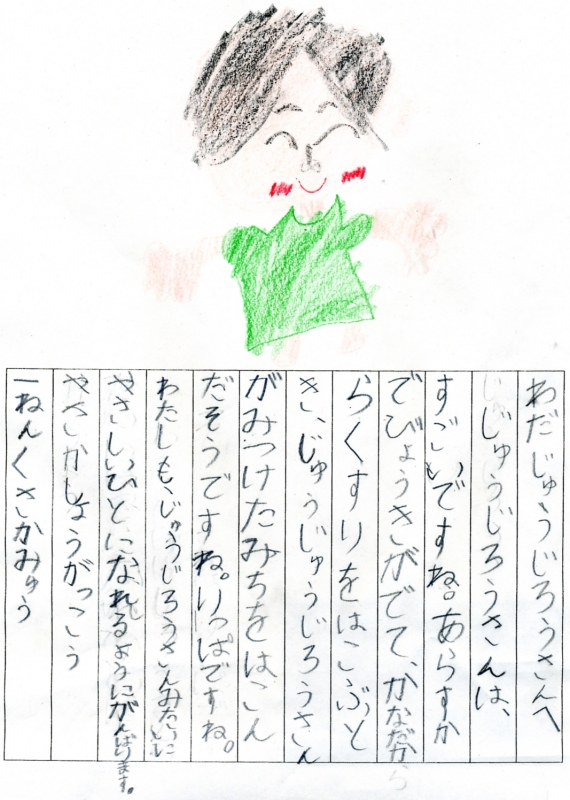 わだじゅうじろうさんへ
じゅうじろうさんは、
すごいですね。あらすか
でびょうきがでて、かなだから
らくすりをはこぶっと
き、じゅうじゅうじろうさん
がみつけたみちをはこん
だそうですね。りっぱですね。
わたしも、じゅうじろうさんみたいに
やさしいひとになれるようにがんばります。
やさかしょうがっこう
一ねんくさかみゅう